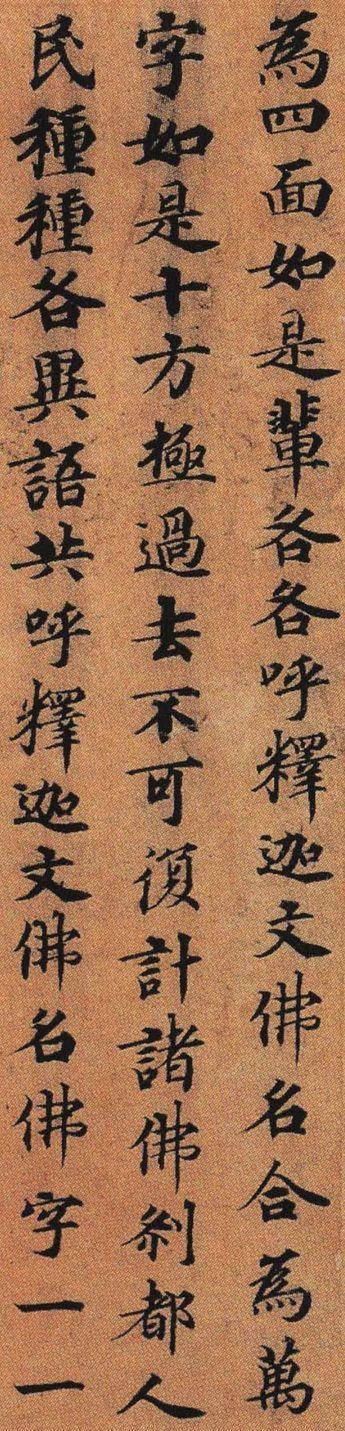 為四面如是輩各各呼釋迦文佛名合為萬
字如是十方極過去不可復計諸佛剎都人
民種種各異語共呼釋迦文佛名佛字一一